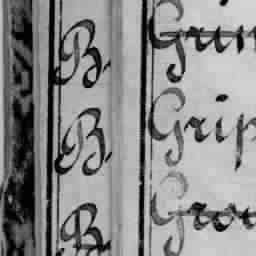 B. Grin
B. Grip
B. Grou